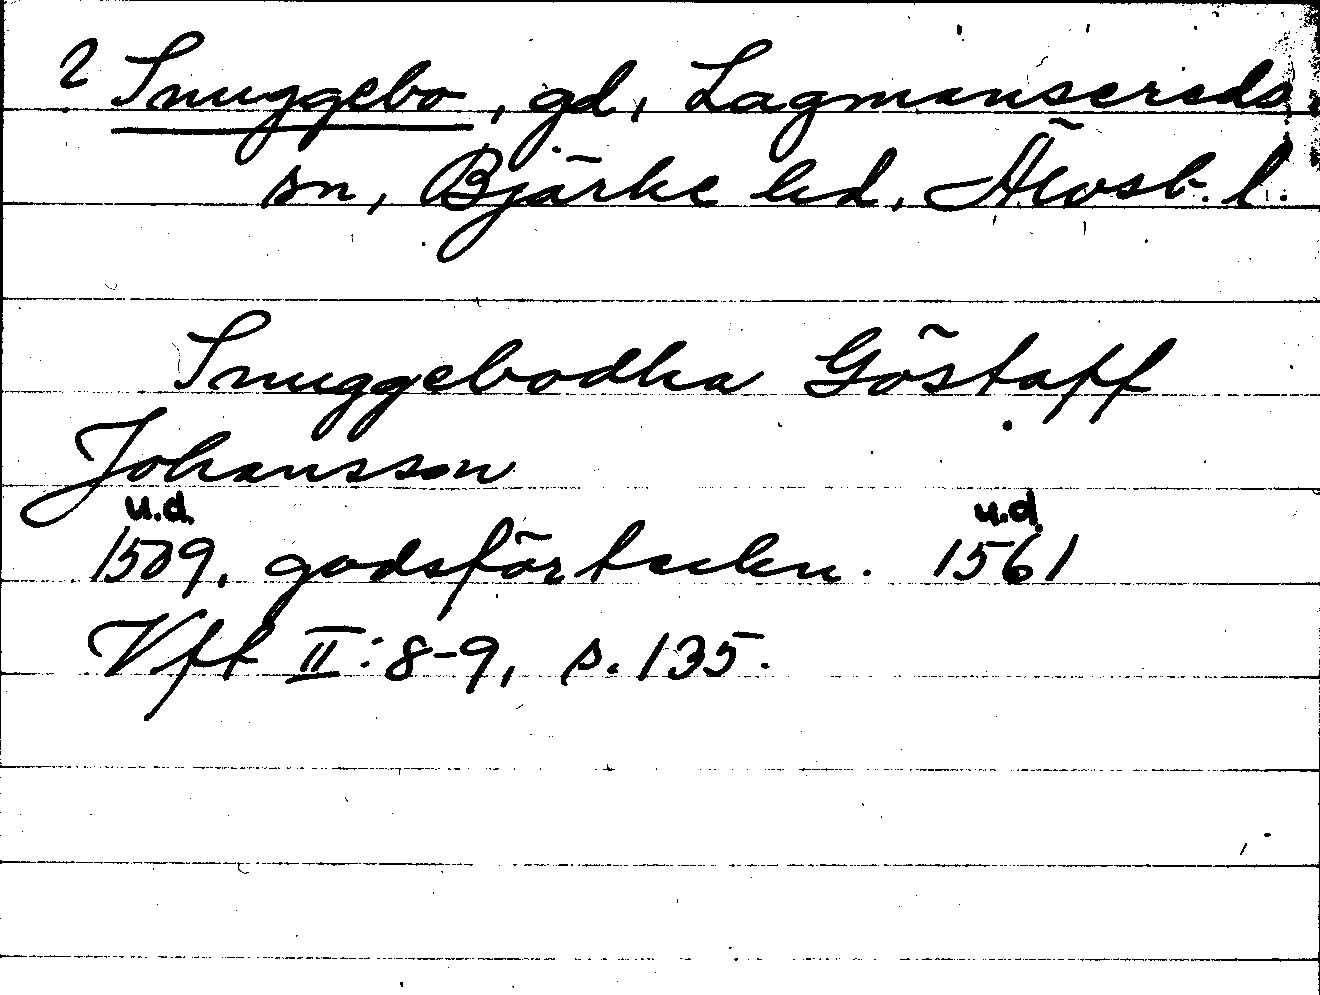 2 Snuggebo, gd, Lagmansereds
sn, Bjärke hd, Älvsb. l.
Snuggebodha Göstaff
Johansson
u.d. u.d.
1509, godsförteckn. 1561
Vft II:8-9, s. 135.